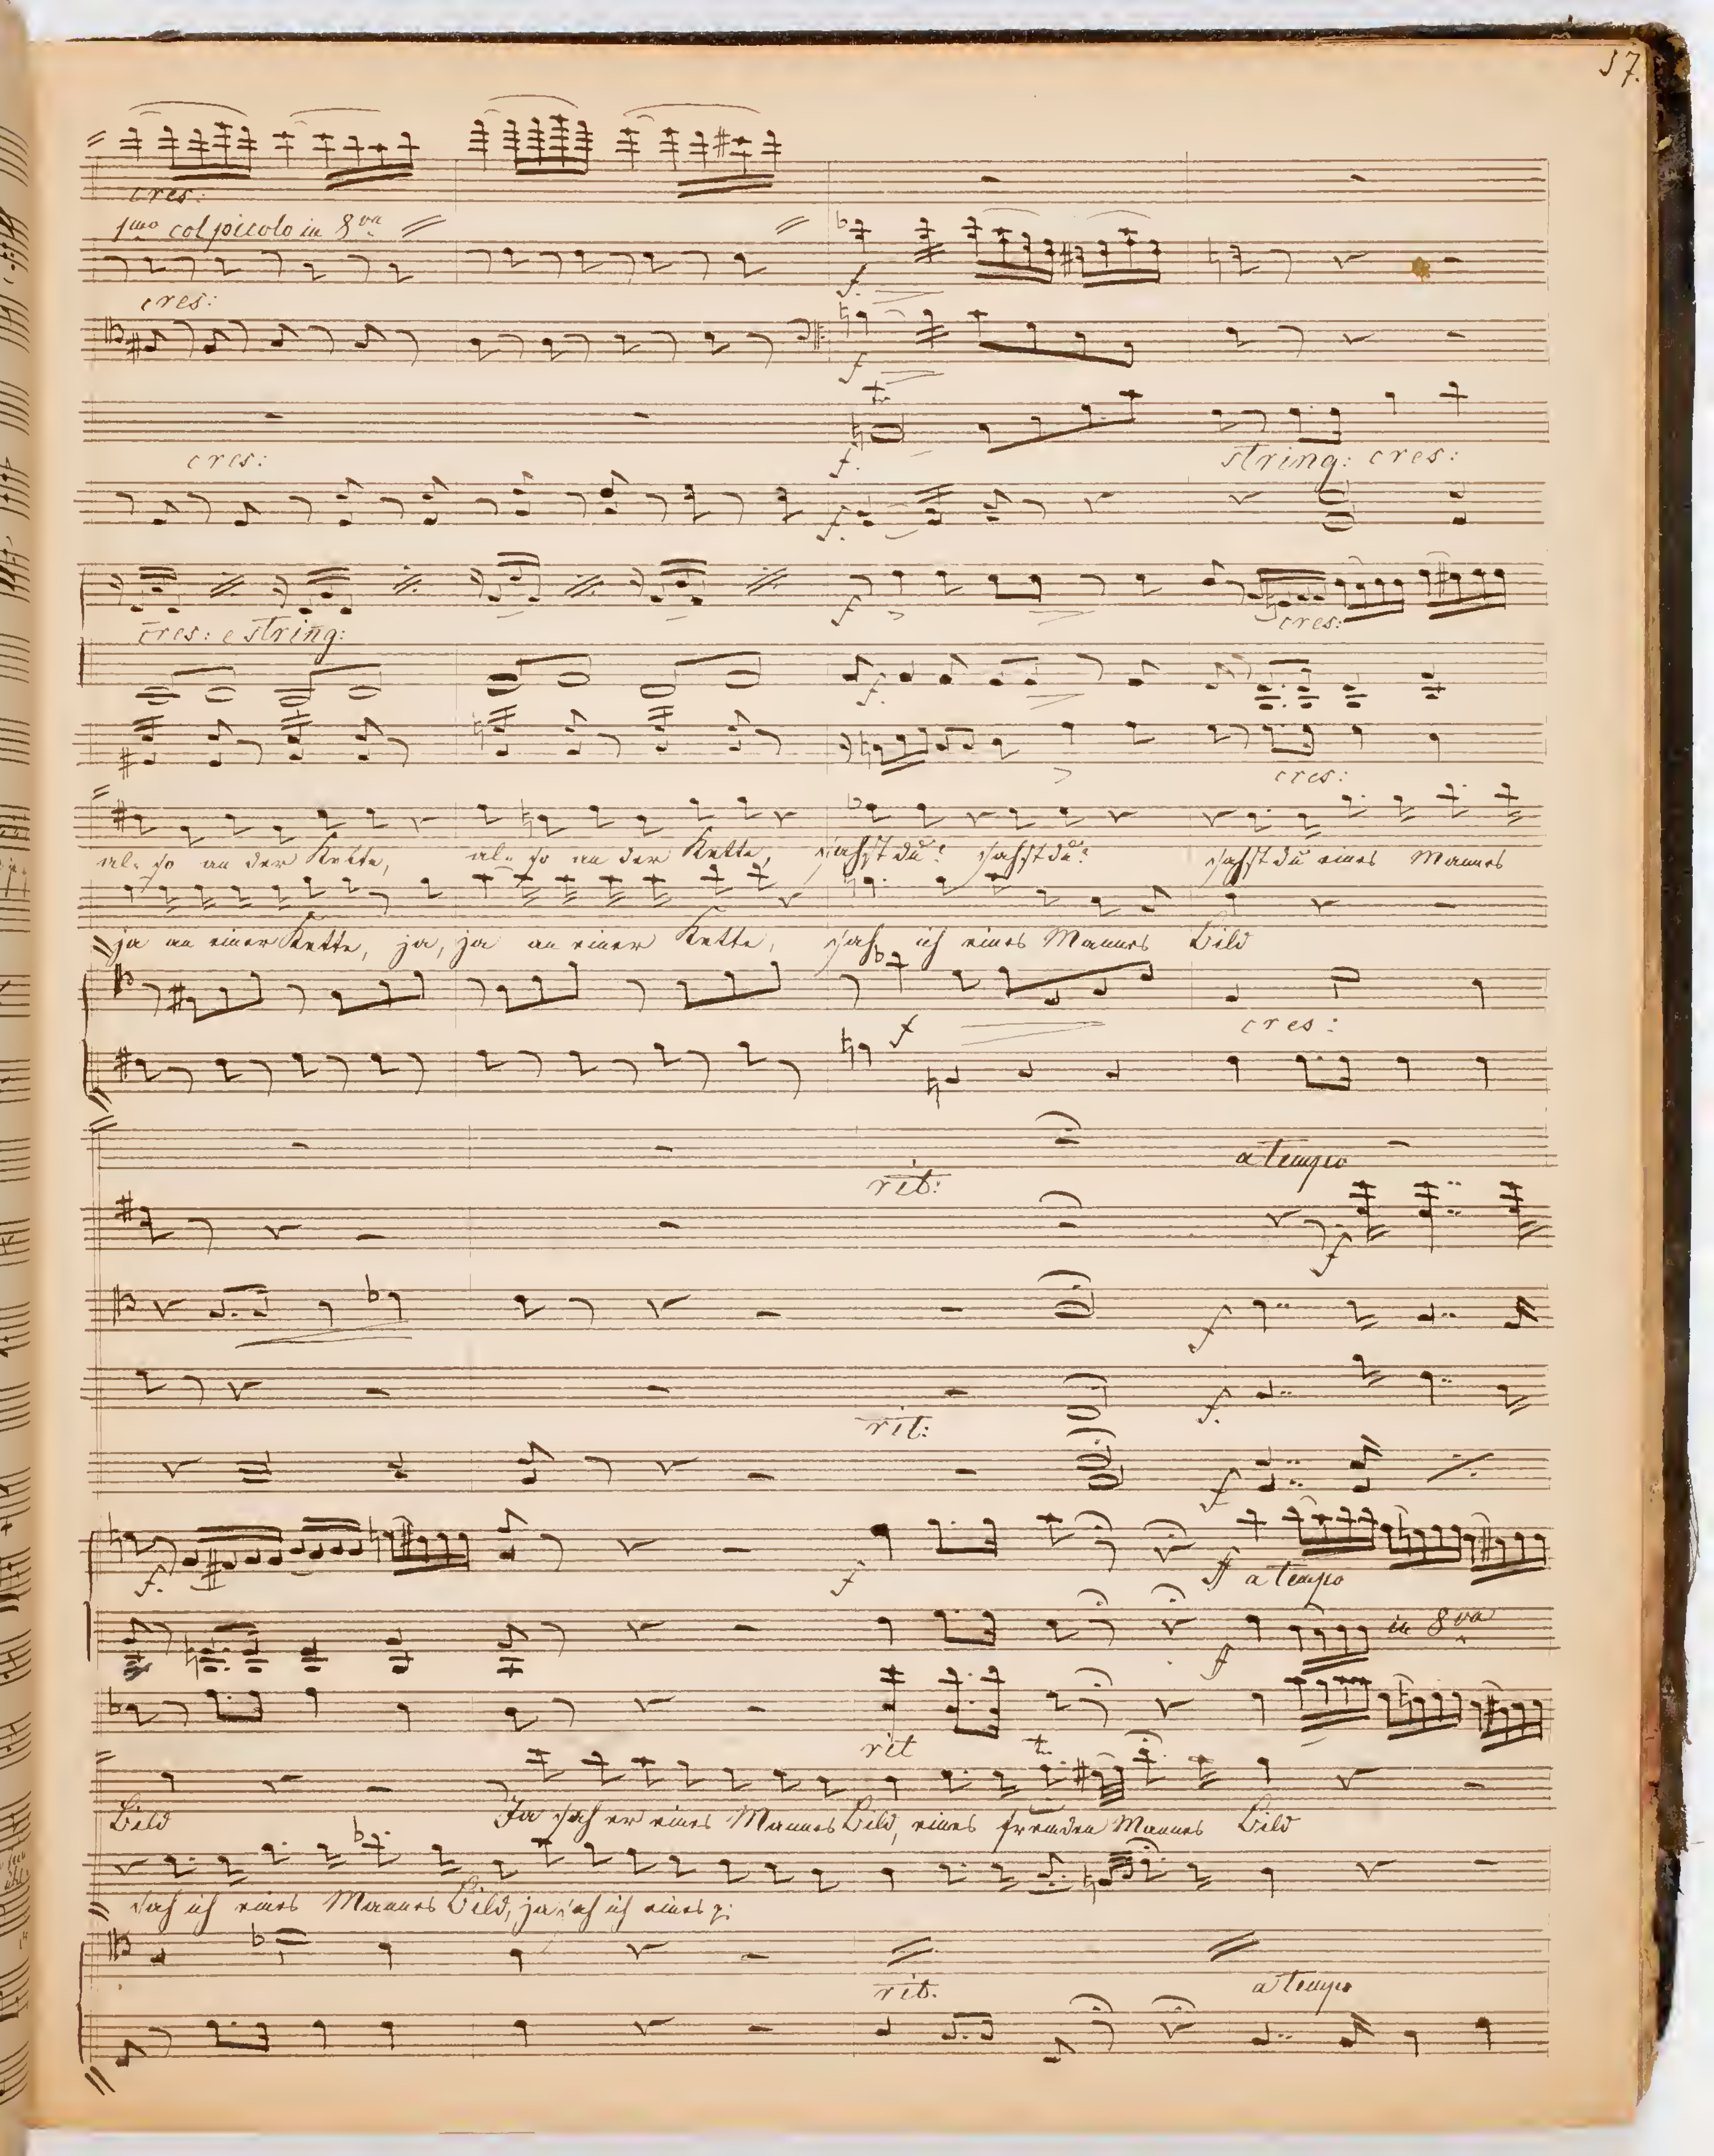 57.
cres:
1mo col piccolo in 8va
cres:
f.
f
cres:
f.
string: cres:
f.
cres: e string:
f
cres:
f.
cres:
al- so an der Kette, al- so an der Kette, sahst du? sahst du? sahst du eines Mannes
ja an einer Kette, ja, ja an einer Kette, sah ich eines Mannes Bild
f
cres:
a tempo
rit:
f
f
f.
rit:
f
f.
f
ff a tempo
ff
in 8va
rit
tr
Bild Ja sah er eines Mannes Bild, eines fremden Mannes Bild
sah ich eines Mannes Bild, ja sah ich eines
rit.
a tempo